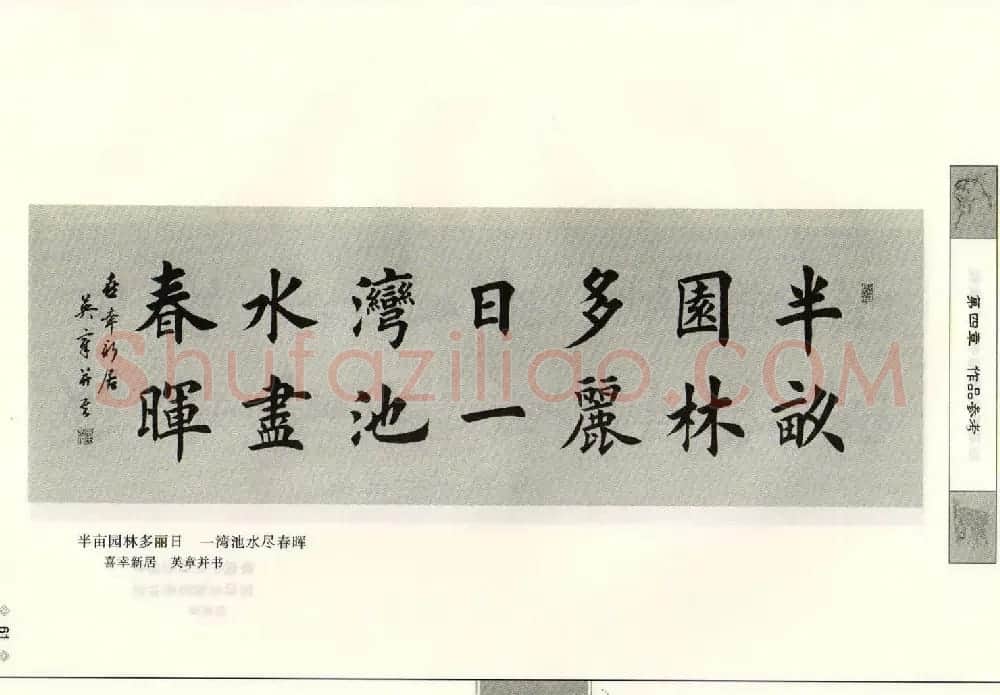 半畝
園林
多麗
日一
灣池
水盡
春暉
喜幸新居
英章并书
Shufaziliao.COM
半亩园林多丽日 一湾池水尽春晖
喜幸新居 英章并书
第四章 作品参考
61